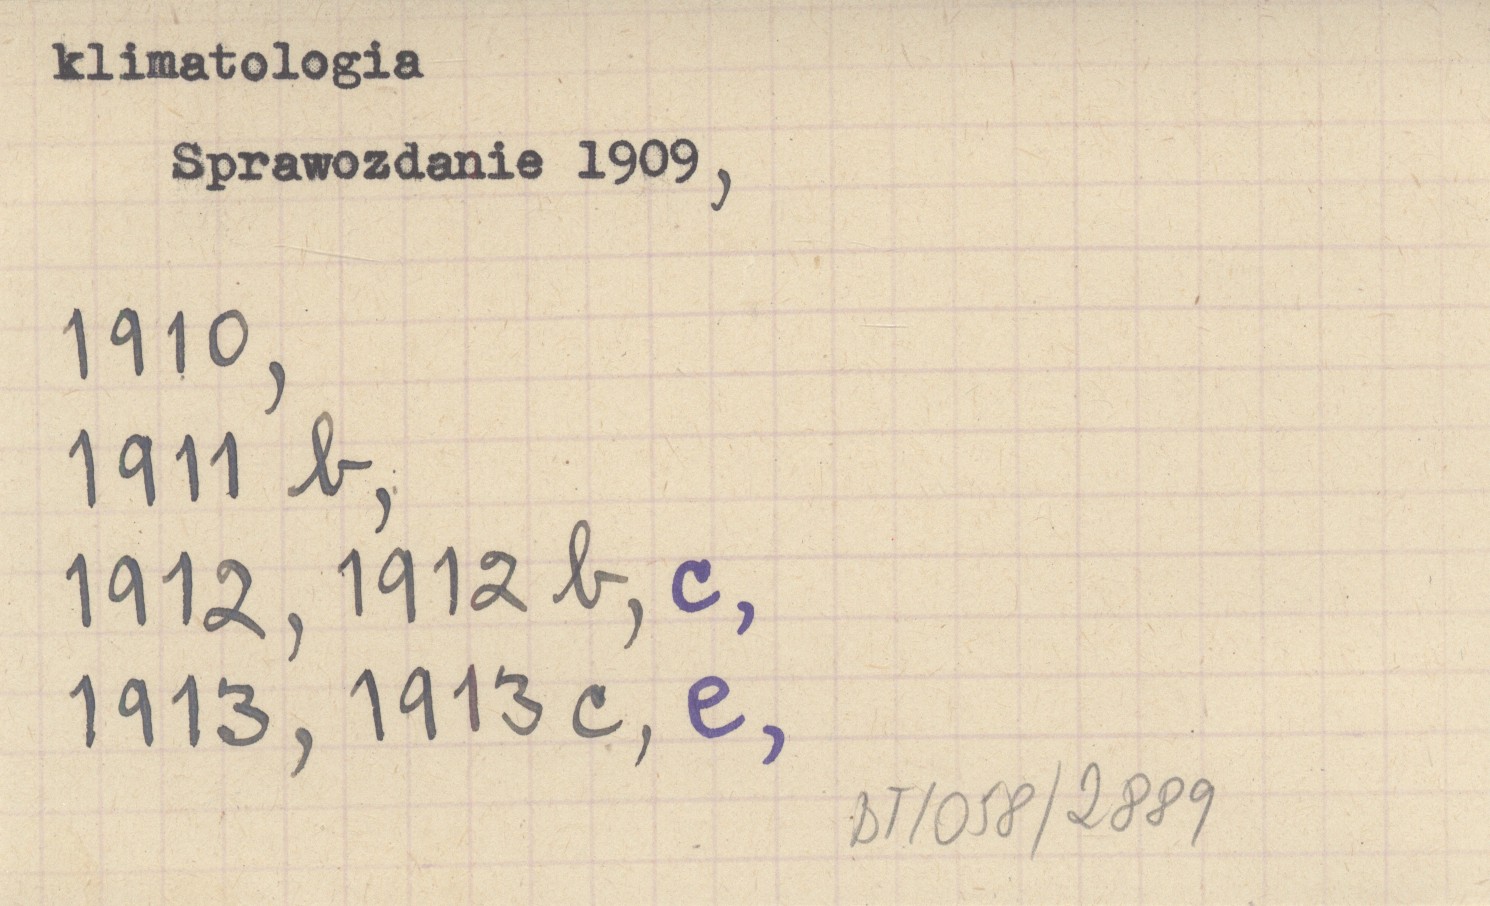 klimatologia
Sprawozdanie 1909,
1910,
1911 b,
1912, 1912 b, c,
1913, 1913 c, e,
BT/058/2889